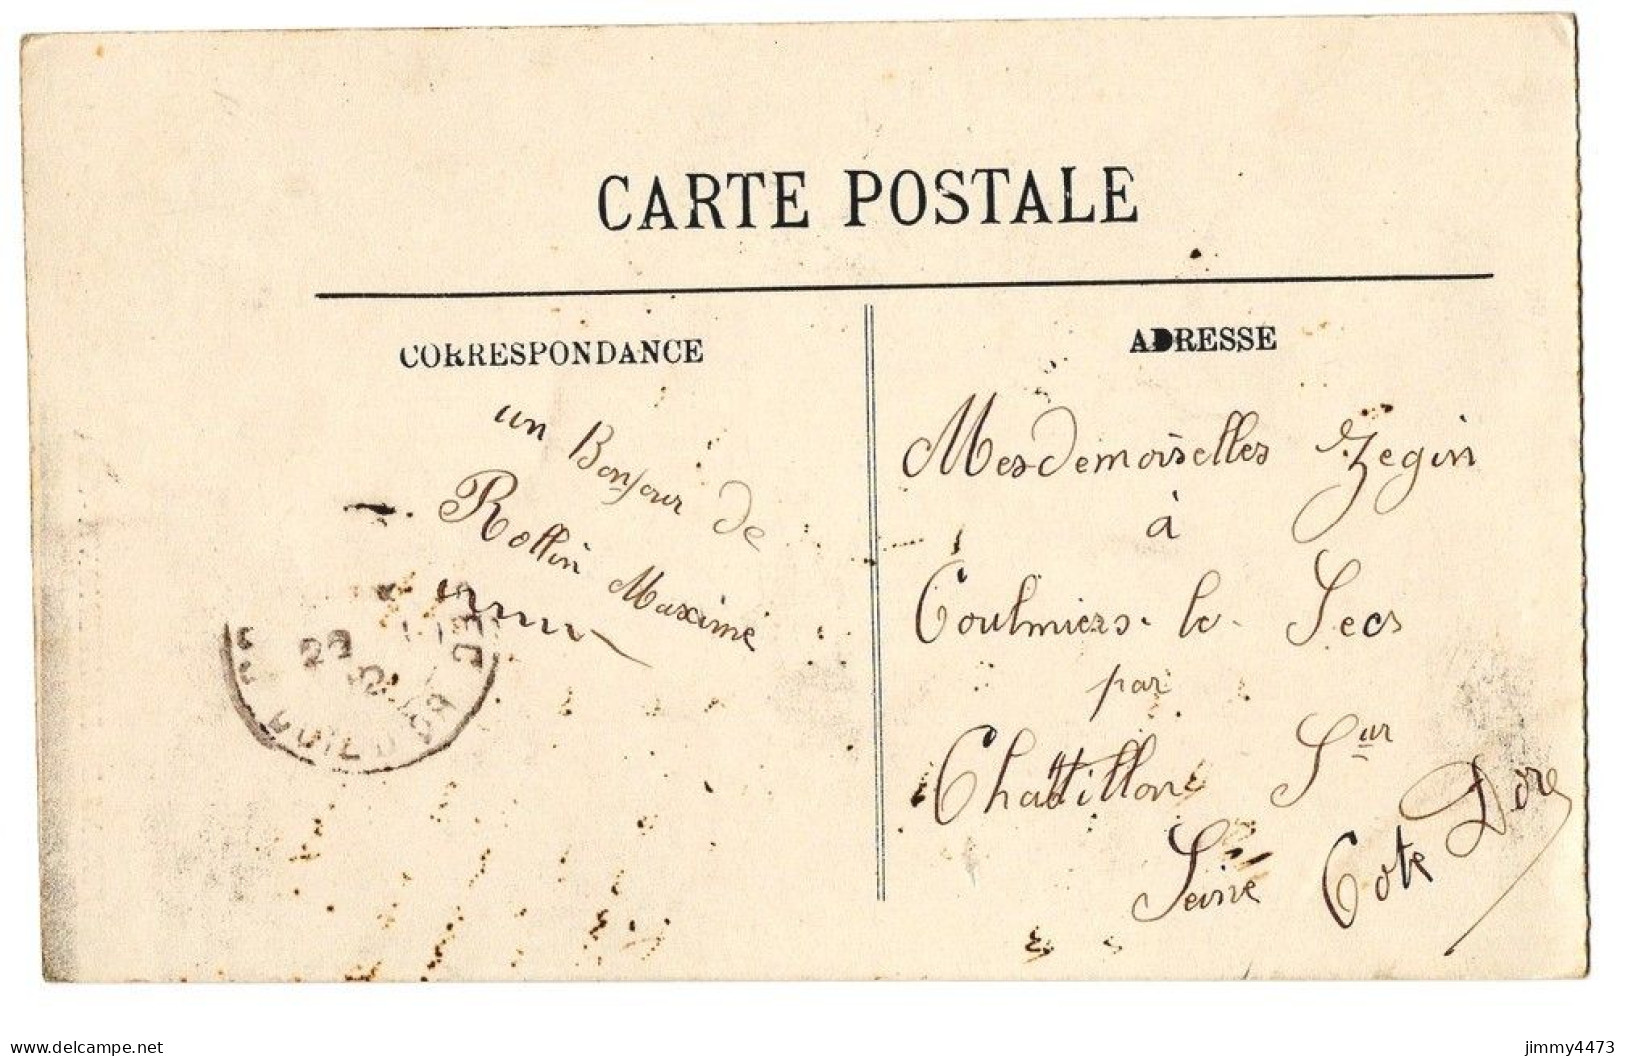 CARTE POSTALE
CORRESPONDANCE
un Bonjour de
Rollin Maxime
ADRESSE
Mesdemoiselles Zegin
à
Coulmiers-le-Secs
par
Chattillon Sur
Seine Cote Dore
29
www.delcampe.net
jimmy4473